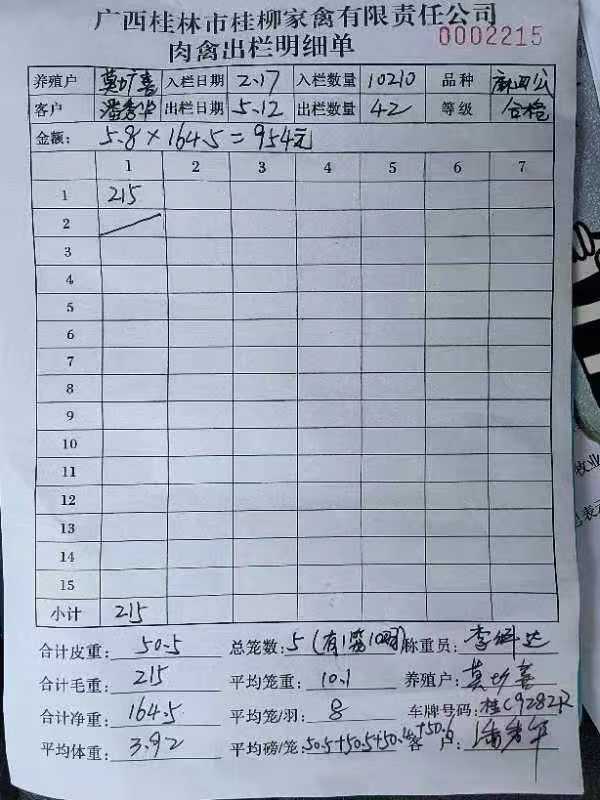 广西桂林市桂柳家禽有限责任公司
肉禽出栏明细单 0002215
养殖户 莫 善 入栏日期 2.17 入栏数量 10210 品种 麻四公
客户 潘秀华 出栏日期 5.12 出栏数量 42 等级 合格
金额: 5.8×164.5=954元
1 2 3 4 5 6 7
1 215
2
3
4
5
6
7
8
9
10
11
12
13
14
15
小计 215
合计皮重: 50.5 总笼数: 5 (有1笼10羽) 称重员: 李 达
合计毛重: 215 平均笼重: 10.1 养殖户: 莫 善
合计净重: 164.5 平均笼/羽: 8 车牌号码: 桂C9282R
平均体重: 3.92 平均磅/笼: 50.5+50.5+50.4+50.6 客户: 潘秀华